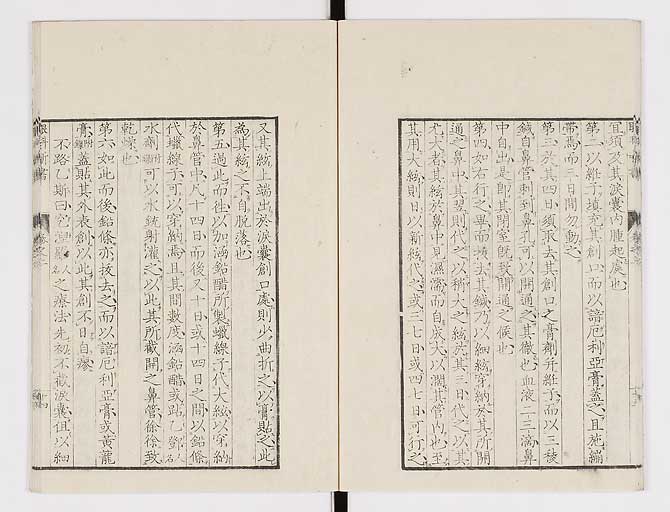 宜須及其淚囊內腫起處也
第二以維子填充其創口而以諳厄利亞膏蓋之且施繃
帶焉而三日間勿動之
第三於其四日須取去其創口之膏劑并維子而以三稜
鍼自鼻管刺到鼻孔可以開通之其徵也血液二三滴鼻
中自出是即其閉室既致開通之候也
第四如右行之畢而拔去其鍼乃以細絃穿納於其所開
通之鼻中其翌則代之以稍大之絃於其三日代之以其
尤大者其絃於鼻中見濕滴而自成大以濶其管內也至
其用大絃則日以新絃代之或三七日或四七日可行之
又其絃上端出於淚囊創口處則少曲折之以膏貼之此
為其絃之不自脫落也
第五過此而往以加涵鉛醋所製蠟線子代大絃以穿納
於鼻管中凡十四日而後又十日或十四日之間以鉛條
代蠟線子可以穿納焉且其間數度涵鉛醋或
水劑附錄可以水銃射灌之以此其所截開之鼻管徐徐致
乾燥也
第六如此而後鉛條亦拔去之而以諳厄利亞膏或黃龍
膏附錄蓋貼其外表創以此其創不日自瘳
不路乙斯曰
之療法先初不截淚囊但以細
眼科新書